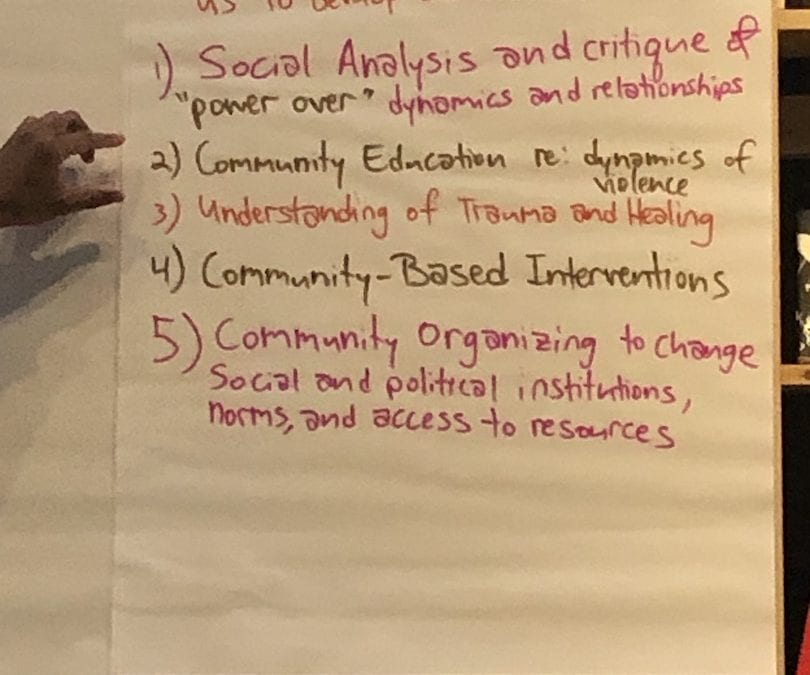 us to develop
1) Social Analysis and critique of
"power over" dynamics and relationships
2) Community Education re: dynamics of
violence
3) Understanding of Trauma and Healing
4) Community-Based Interventions
5) Community Organizing to change
Social and political institutions,
norms, and access to resources